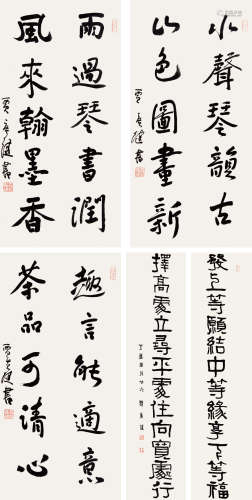 水聲琴韻古
山色圖畫新
雨過琴書潤
風來翰墨香
趣言能適意
茶品可清心
發上等願結中等緣享下等福
擇高處立尋平處住向寬處行